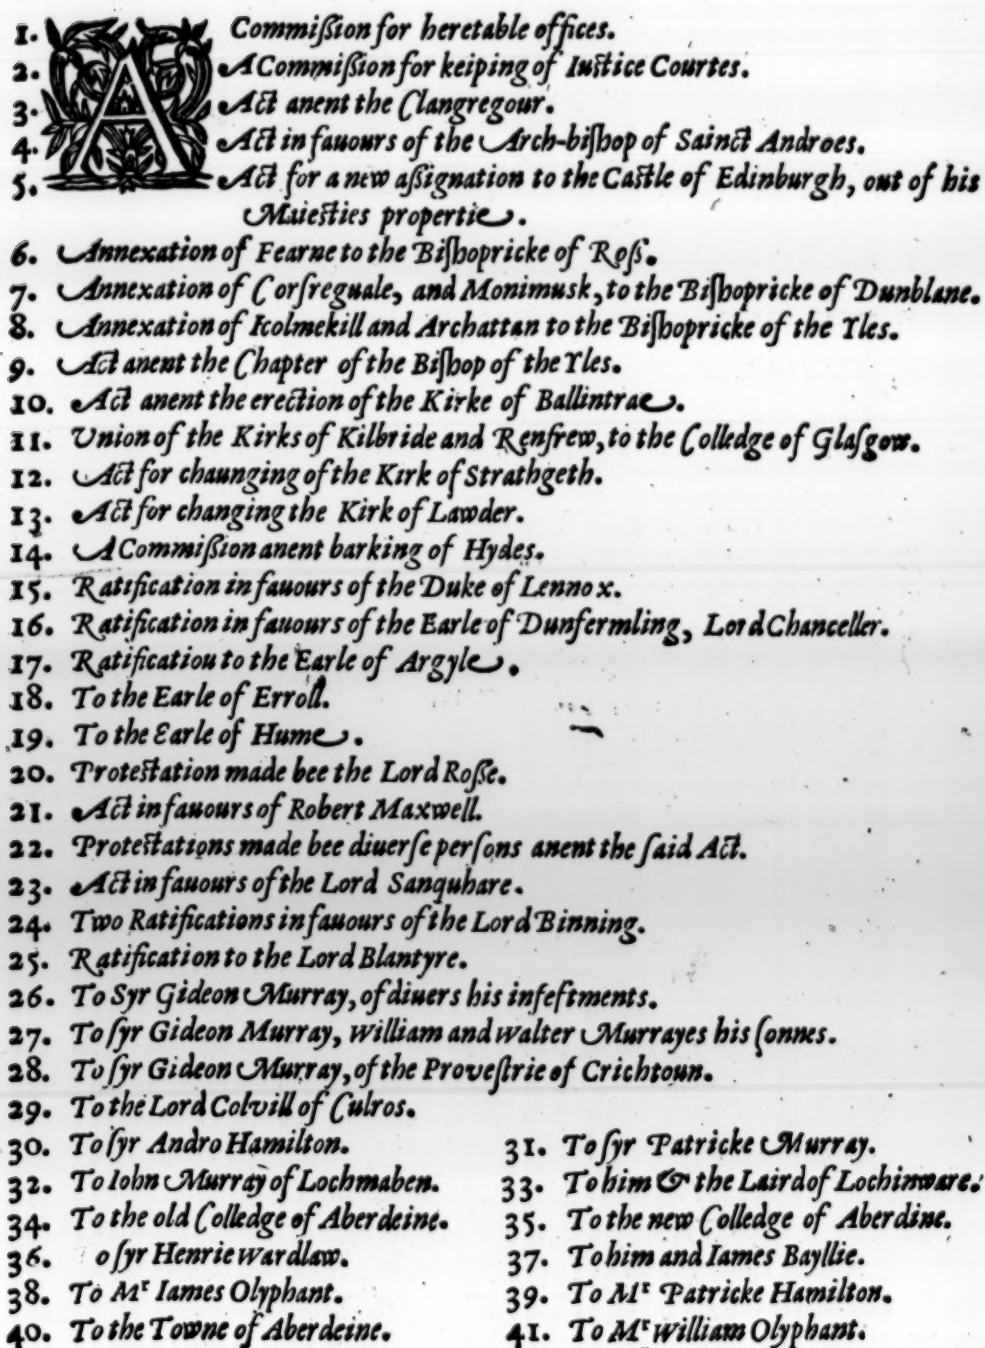 1. A Commißion for heretable offices.
2. A Commißion for keiping of Iustice Courtes.
3. Act anent the Clangregour.
4. Act in fauours of the Arch-biſhop of Sainct Androes.
5. Act for a new aßignation to the Castle of Edinburgh, out of his
Maiesties propertie.
6. Annexation of Fearne to the Biſhopricke of Roß.
7. Annexation of Corſreguale, and Monimusk, to the Biſhopricke of Dunblane.
8. Annexation of Icolmekill and Archattan to the Biſhopricke of the Yles.
9. Act anent the Chapter of the Biſhop of the Yles.
10. Act anent the erection of the Kirke of Ballintrae.
11. Union of the Kirks of Kilbride and Renfrew, to the Colledge of Glaſgow.
12. Act for chaunging of the Kirk of Strathgeth.
13. Act for changing the Kirk of Lawder.
14. A Commißion anent barking of Hydes.
15. Ratification in fauours of the Duke of Lennox.
16. Ratification in fauours of the Earle of Dunfermling, Lord Chanceller.
17. Ratificatiou to the Earle of Argyle.
18. To the Earle of Erroll.
19. To the Earle of Hume.
20. Protestation made bee the Lord Roße.
21. Act in fauours of Robert Maxwell.
22. Protestations made bee diuerſe perſons anent the ſaid Act.
23. Act in fauours of the Lord Sanquhare.
24. Two Ratifications in fauours of the Lord Binning.
25. Ratification to the Lord Blantyre.
26. To Syr Gideon Murray, of diuers his infeftments.
27. To ſyr Gideon Murray, William and Walter Murrayes his ſonnes.
28. To ſyr Gideon Murray, of the Proveſtrie of Crichtoun.
29. To the Lord Colvill of Culros.
30. To ſyr Andro Hamilton. 31. To ſyr Patricke Murray.
32. To Iohn Murray of Lochmaben. 33. To him & the Laird of Lochinware.
34. To the old Colledge of Aberdeine. 35. To the new Colledge of Aberdine.
36. o ſyr Henrie Wardlaw. 37. To him and Iames Bayllie.
38. To Mr Iames Olyphant. 39. To Mr Patricke Hamilton.
40. To the Towne of Aberdeine. 41. To Mr William Olyphant.